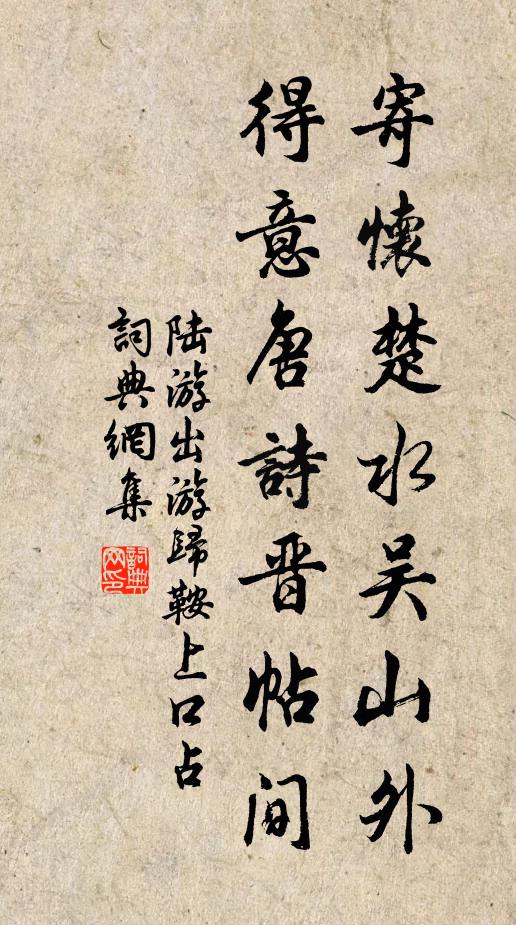 寄懷楚水吴山外
得意唐詩晋帖間
陆游出游歸鞍上口占
詞典網集
詞典網印